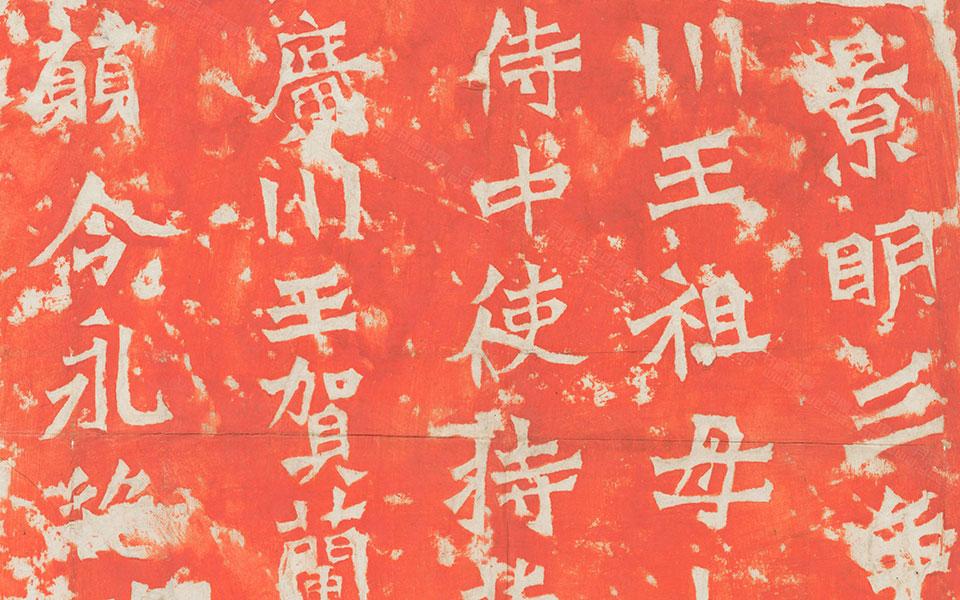 景明三年
川王祖母
侍中使持
廣川王賀蘭
願令永絶